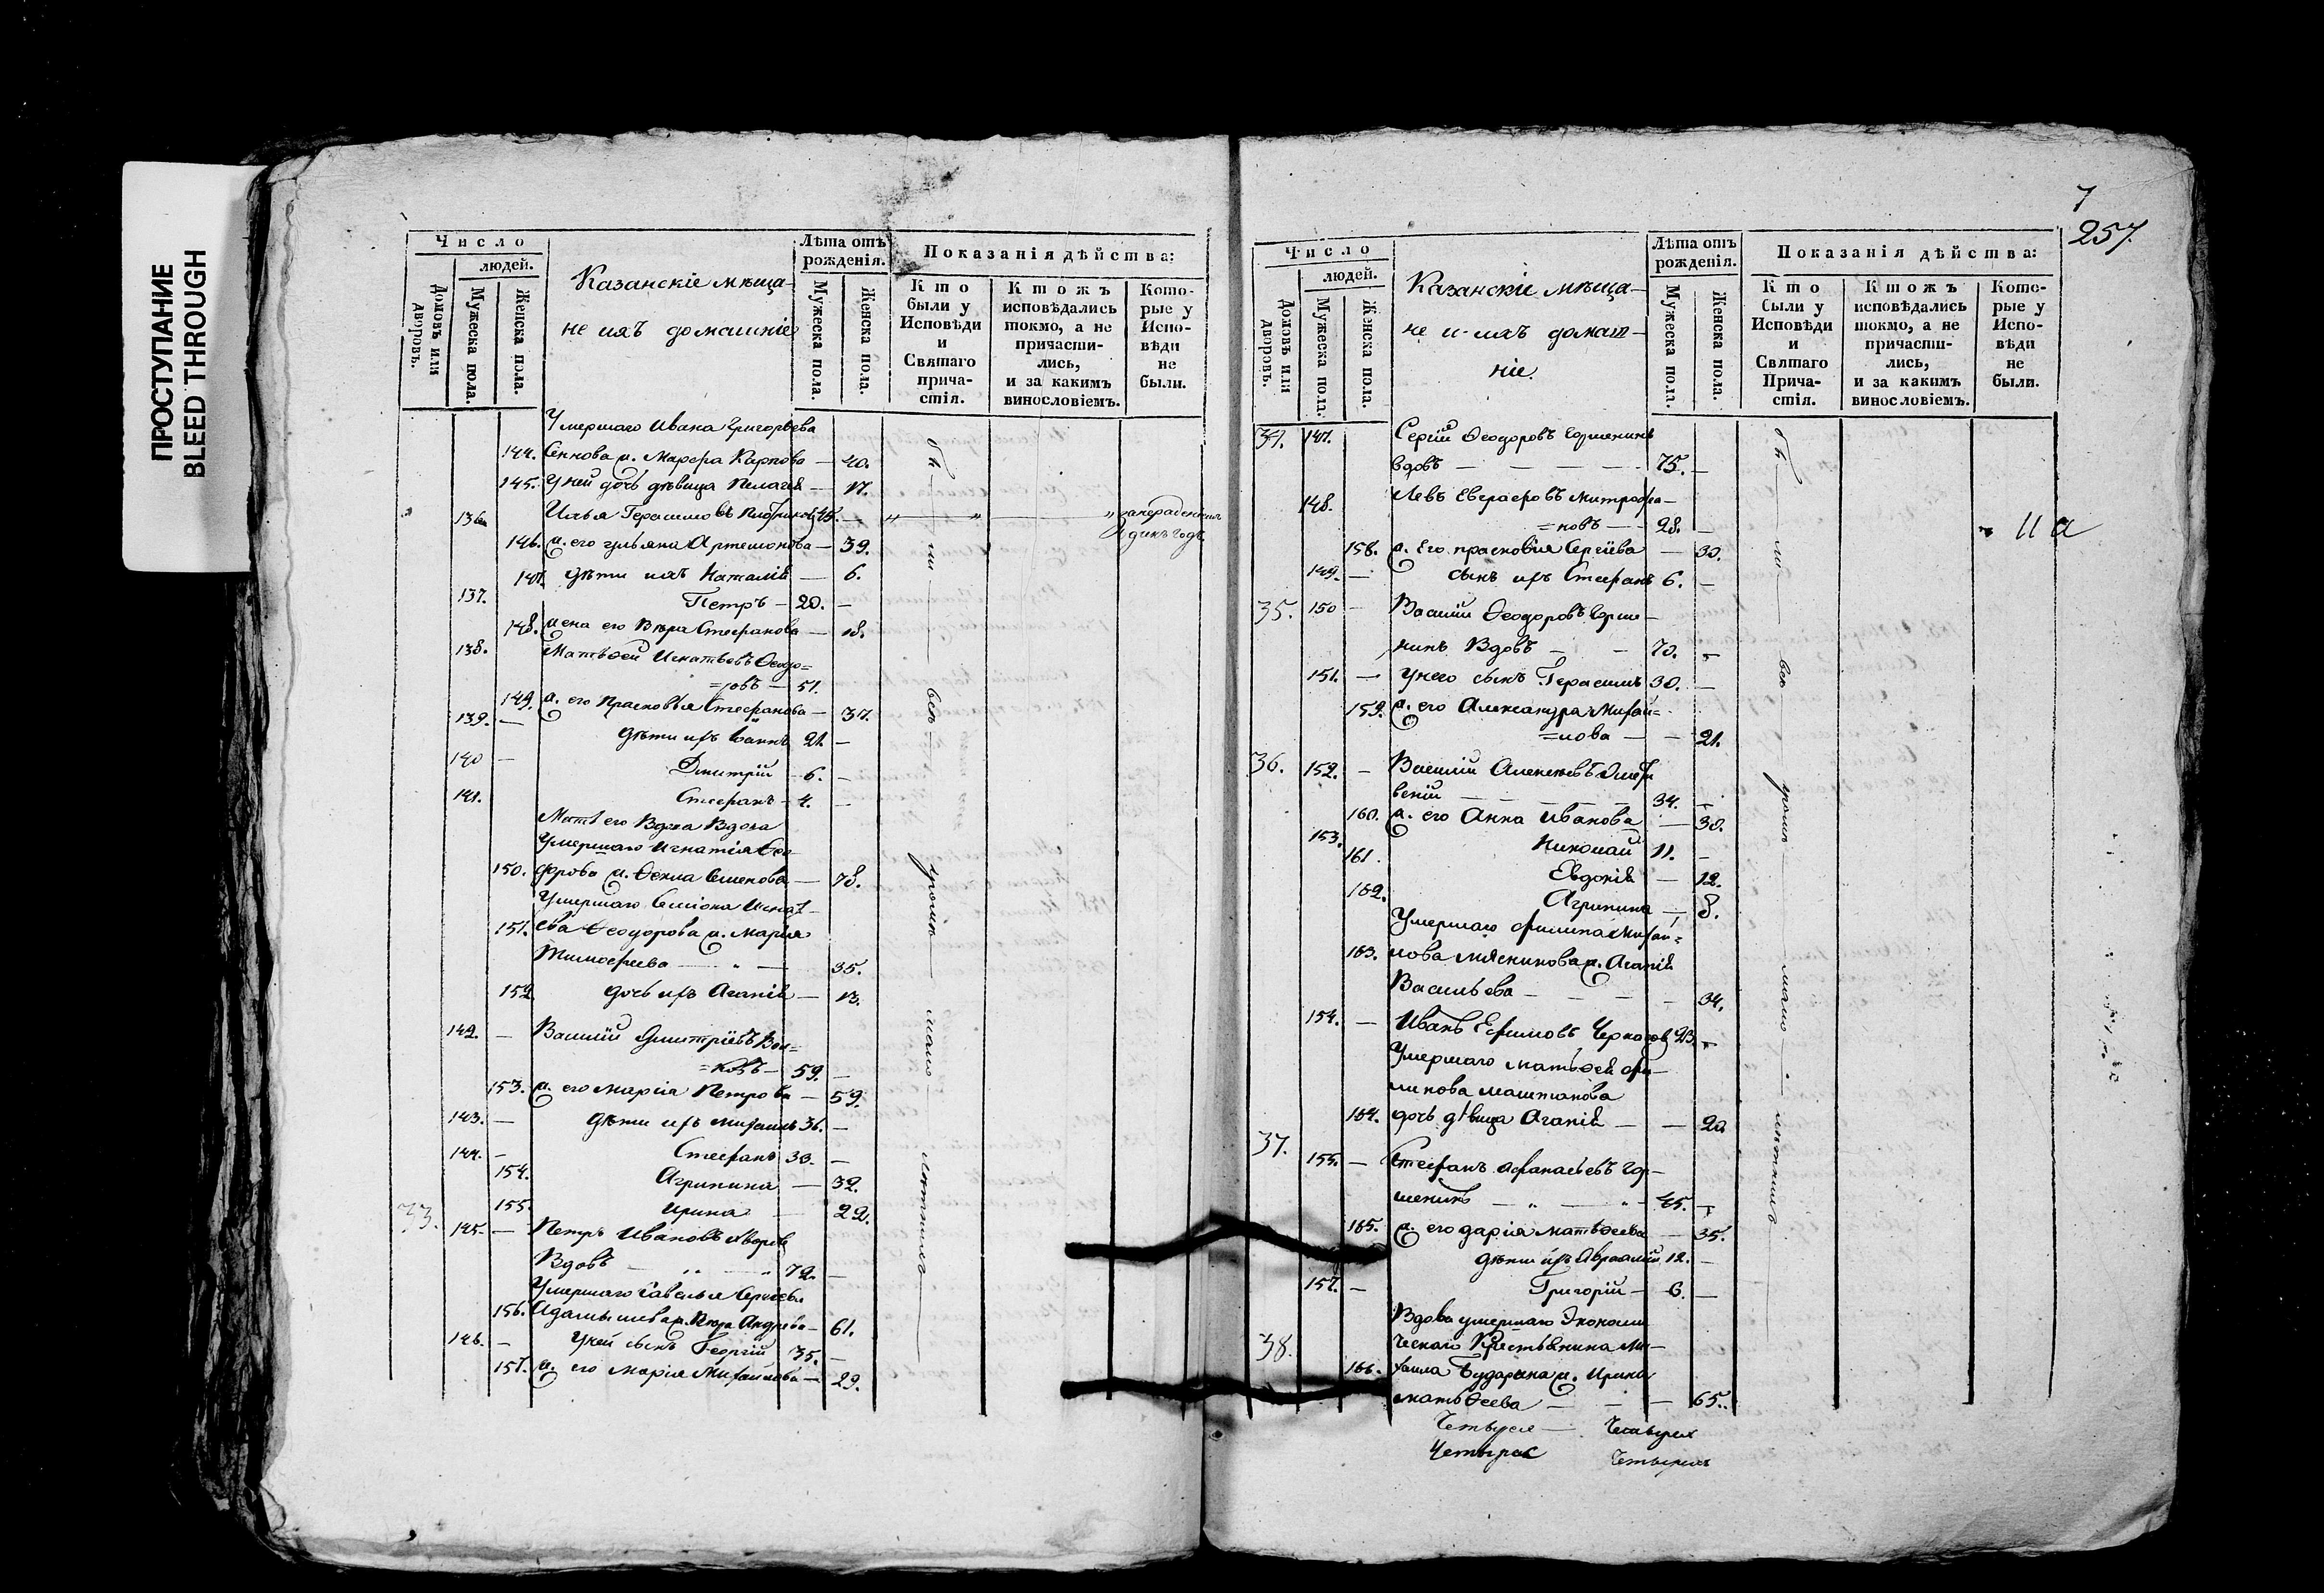 ПРОСТУПАНИЕ
BLEED THROUGH
Число
людей.
Домовъ или дворовъ.
Мужеска пола.
Женска пола.
Казанскіе мѣща-
не ихъ домашніе
Лѣта отъ рожденія.
Мужеска пола.
Женска пола.
Показанія дѣйства:
Кто были у Исповѣди и Святаго причастія.
Ктожъ исповѣдались токмо, а не причастились, и за какимъ винословіемъ.
Которые у Исповѣди не были.
Умершаго Ивана Григорьева
144. Сеннова ж. Марфа Карпова — 40.
145. У ней дочь дѣвица Пелагея — 17.
136 Илья Герасимовъ 45. — " "
146. ж. его Ульяна Артемонова — 39.
147. дѣти ихъ Наталія — 6.
137. Петръ — 20. —
148. жена его Вѣра Стефанова — 18.
138. Матвѣй Игнатьевъ Ѳеодо=
=ровъ — 51.
149. ж. его Прасковья Стефанова — 37.
139. — дѣти ихъ Іоаннъ 21. —
140 — Дмитрій — 6. —
141. Стефанъ — 4. —
Мать его Вдова
Умершаго Игнатія Ѳео-
150. дорова ж. Ѳекла Семенова — 78.
Умершаго Симіона Игнать-
151. ева Ѳеодорова ж. Марія
Тимофеева — " — 35.
152 дочь ихъ Агапія — 13.
142. — Василій Дмитріевъ Вол=
=ковъ — 59. —
153. ж. его Марія Петрова — 59.
143. — дѣти ихъ Михаилъ 36. —
144. — Стефанъ 30. —
154. Агрипина — 32.
155. Ирина — 22.
33. 145. — Петръ Ивановъ
Вдовъ — " — " 72. —
Умершаго Савелья Сергѣева
156. ж. Андреева — 61.
146. — У ней сынъ Георгій 35. —
157. ж. его Марія Михайлова — 29.
7
257.
Число
людей.
Домовъ или дворовъ.
Мужеска пола.
Женска пола.
Казанскіе мѣща-
не и ихъ домаш-
ніе.
Лѣта отъ рожденія.
Мужеска пола.
Женска пола.
Показанія дѣйства:
Кто были у Исповѣди и Святаго Причастія.
Ктожъ исповѣдались токмо, а не причастились, и за какимъ винословіемъ.
Которые у Исповѣди не были.
147. Сергій Ѳеодоровъ Горшенинъ
вдовъ — — — 75. —
148. Левъ Евграфовъ Митрофа-
=новъ — — 28. —
158. ж. Его Прасковія Сергіева — 30.
149. — сынъ ихъ Стефанъ 6. —
35. 150 — Василій Ѳеодоровъ Горше-
нинъ Вдовъ — — 70. —
151. — У него сынъ Герасимъ 30. —
159. ж. его Александра Михай=
=лова — — 21.
36. 152. — Василій Алексѣевъ
34. —
160. ж. его Анна Иванова — 30.
153. Николай 11. —
161. Евдокія — 12.
162. Агрипина — 8.
Умершаго Филипа Михай=
163. лова Мясникова ж. Агапія
Васильева — — — 34.
154. — Иванъ Ефимовъ 23. —
Умершаго Матвѣя Фи-
липова Маштакова
164. дочь дѣвица Агапія — — 20
37. 155. — Стефанъ Афанасьевъ Гор-
шенинъ — " — " — 45. —
165. ж. его Дарія Матвѣева — 35.
дѣти ихъ 12. —
157. — Григорій — 6. —
Вдова умершаго Экономи
38. ческаго Крестьянина Ми-
166. хаила Бударина ж. Ирина
Матвѣева — — — 65.